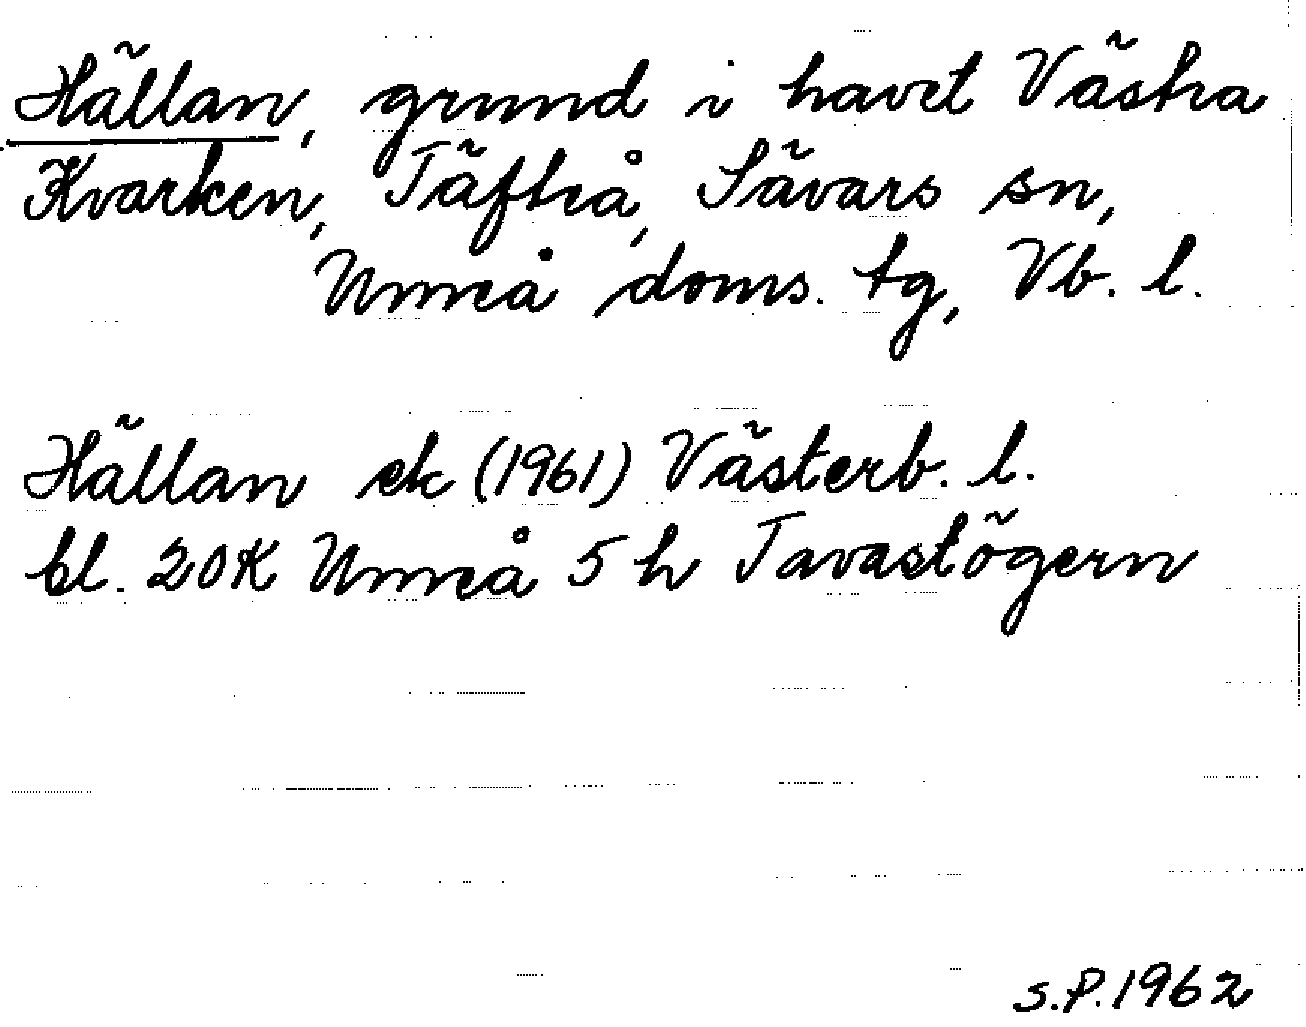 Hällan, grund i havet Västra
Kvarken, Täfteå, Sävars sn,
Umeå doms. tg, Vb. l.
Hällan ek (1961) Västerb. l.
bl. 20K Umeå 5 h Tavastögern
S.P. 1962